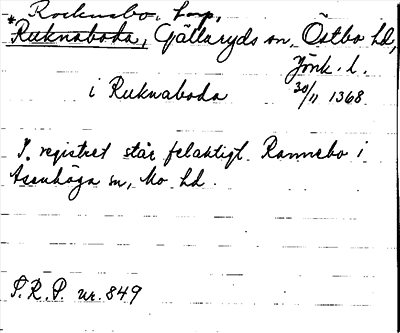 Rocknebo, torp,
*Ruknaboda, Gällaryds sn, Östbo hd,
Jönk. l.
i Ruknaboda 30/11 1368
I registret står felaktigt Rannebo i
Åsenhöga sn, Mo hd.
S.R.P. nr. 849